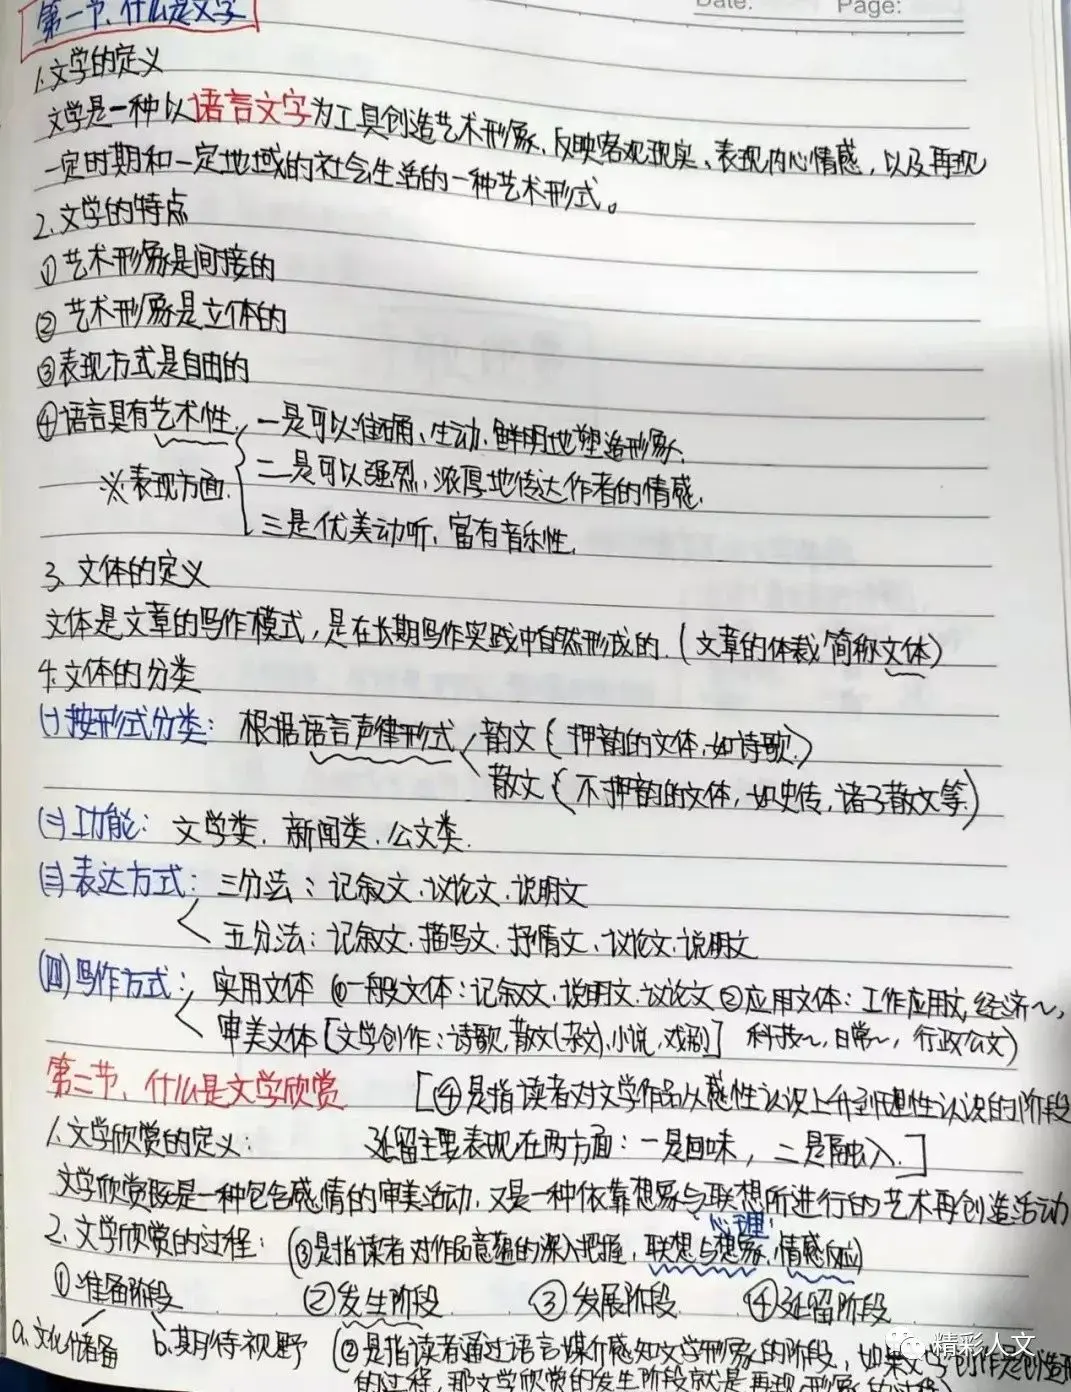 Date: Page:
第一节、什么是文学
1.文学的定义
文学是一种以语言文字为工具创造艺术形象、反映客观现实、表现内心情感，以及再现
一定时期和一定地域的社会生活的一种艺术形式。
2.文学的特点
①艺术形象是间接的
②艺术形象是立体的
③表现方式是自由的
④语言具有艺术性 一是可以准确、生动、鲜明地塑造形象.
※表现方面. 二是可以强烈,浓厚地传达作者的情感.
三是优美动听,富有音乐性.
3.文体的定义
文体是文章的写作模式,是在长期写作实践中自然形成的.(文章的体裁简称文体)
4.文体的分类
(一)按形式分类: 根据语言声律形式 韵文(押韵的文体,如诗歌.)
散文(不押韵的文体,如史传,诸子散文等)
(二)功能: 文学类. 新闻类. 公文类.
(三)表达方式: 三分法:记叙文.议论文.说明文
五分法:记叙文.描写文.抒情文.议论文.说明文
(四)写作方式: 实用文体 ①一般文体:记叙文.说明文.议论文 ②应用文体:工作应用文,经济~,
审美文体[文学创作:诗歌,散文(杂文),小说,戏剧] 科技~,日常~,行政公文)
第二节、什么是文学欣赏 [④是指读者对文学作品从感性认识上升到理性认识的阶段
1.文学欣赏的定义: 延留主要表现在两方面:一是回味,二是融入.]
文学欣赏既是一种包含感情的审美活动,又是一种依靠想象与联想所进行的艺术再创造活动
心理:
2.文学欣赏的过程: (③是指读者对作品意蕴的深入把握,联想与想象,情感反应)
①准备阶段 ②发生阶段 ③发展阶段 ④延留阶段
a.文化储备 b.期待视野 (②是指读者通过语言媒介感知文学形象的阶段,如果文学创作是创造形
的过程,那文学欣赏的发生阶段就是再现形象的过程)
精彩人文